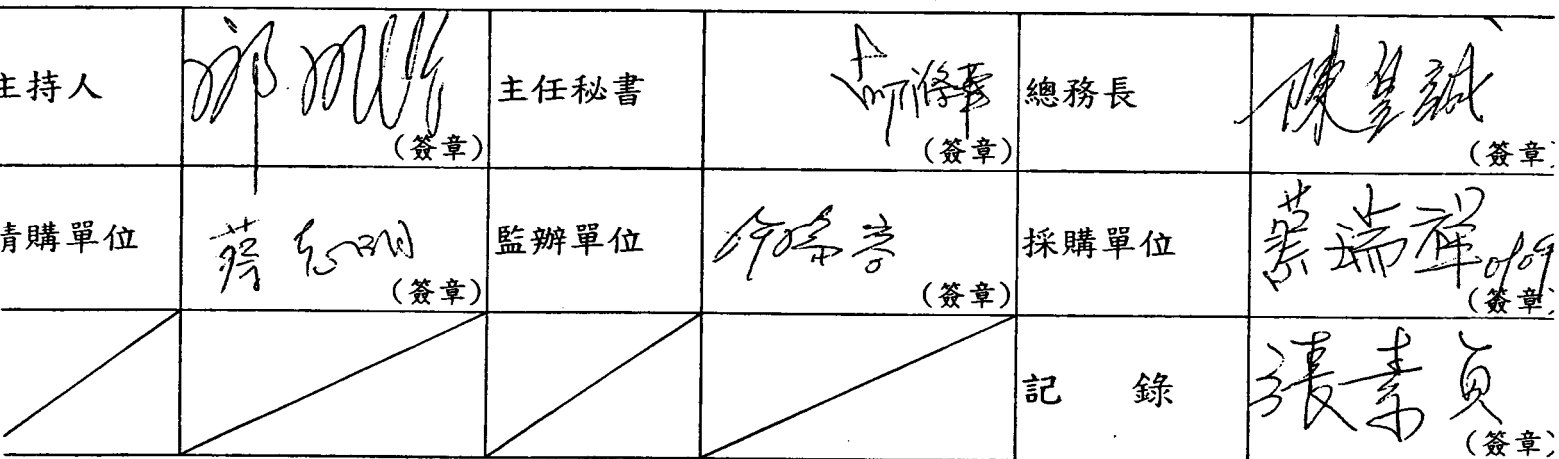 主持人 (簽章) 主任秘書 (簽章) 總務長 陳皇誠 (簽章)
請購單位 蔡志明 (簽章) 監辦單位 (簽章) 採購單位 蔡瑞祥 0109 (簽章)
記 錄 張素貞 (簽章)